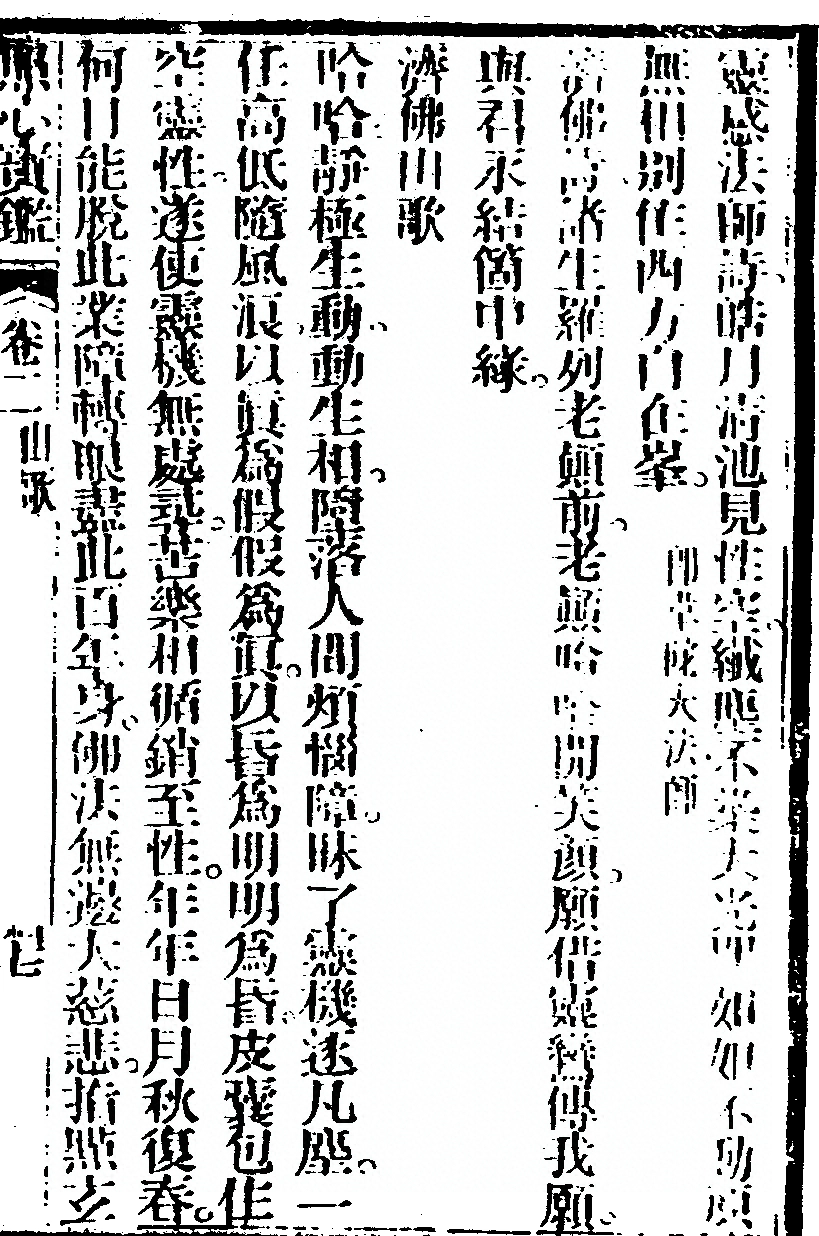 靈感法師詩。皓月清池見性空。纖塵不染大光中。如如不動原
無相。別在西方自在峯。
即韋陀大法師
濟佛詩。諸生羅列老顛前。老顛哈哈開笑顏。願借靈機傳我願。
與君永結箇中緣。
濟佛山歌
哈哈靜極生動。動生相。障落人間煩惱障。昧了靈機迷凡塵。一
任高低隨風浪。以眞為假假為眞。以昏為明明為昏。皮囊包住
空靈性。遂使靈機無處說。苦樂相循銷至性。年年日月秋復春。
何日能脫此業障。轉眼盡此百年身。佛法無邊大慈悲。指點立
照心寶鑑
卷二
山歌